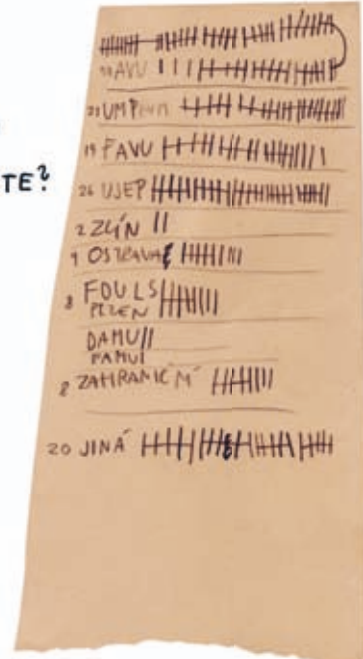 AVU
UMPRUM
19 FAVU
TE?
26 UJEP
2 ZLÍN
9 OSTRAVA
8 FDULS
PLZEŇ
DAMU
FAMU
8 ZAHRANIČNÍ
20 JINÁ